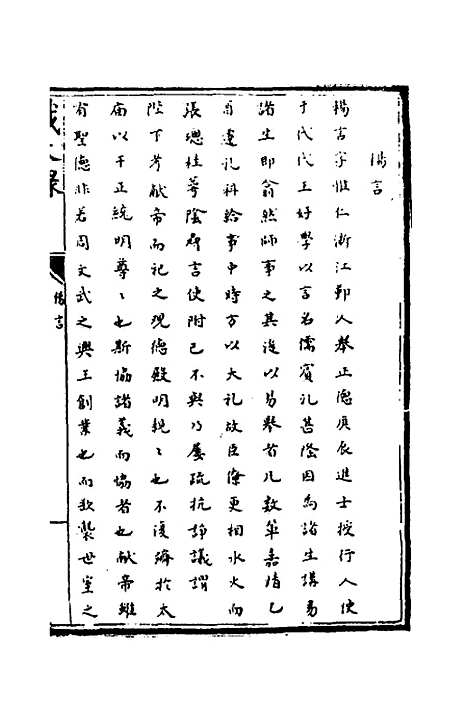 楊言
楊言字惟仁浙江鄞人舉正德庚辰進士授行人使
于代代王好學以言名儒賓礼甚隆因為諸生講易
諸生即翕然師事之其後以易舉者凡数輩嘉靖乙
酉遷礼科給事中時方以大礼故臣僚更相水火而
張璁桂萼陰尋言使附己不與乃屡疏抗諍議謂
陛下考献帝而祀之現德殿明親〻也不復躋扵太
庙以干正統明尊〻也斯協諸義而協者也献帝雖
有聖德非若周文武之興王創業也而欲襲世室之
楊言